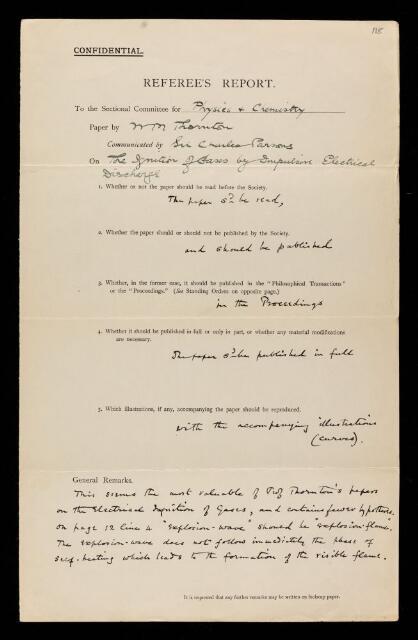 118
CONFIDENTIAL.
REFEREE'S REPORT.
To the Sectional Committee for Physics & Chemistry
Paper by W M Thornton
Communicated by Sir Charles Parsons
On The Ignition of Gases by Impulsive Electrical
Discharge
1. Whether or not the paper should be read before the Society.
The paper shd be read,
2. Whether the paper should or should not be published by the Society.
and should be published
3. Whether, in the former case, it should be published in the "Philosophical Transactions"
or the "Proceedings." (See Standing Orders on opposite page.)
in the Proceedings
4. Whether it should be published in full or only in part, or whether any material modifications
are necessary.
The paper shd be published in full
5. Which illustrations, if any, accompanying the paper should be reproduced.
with the accompanying illustrations
(curves).
General Remarks.
This seems the most valuable of Prof Thornton's papers
on the Electrical Ignition of Gases, and contains fewer hypotheses.
On page 12 line 4 "explosion-wave" should be "explosion-flame".
The explosion-wave does not follow immediately the phase of
self-heating which leads to the formation of the visible flame.
It is requested that any further remarks may be written on foolscap paper.